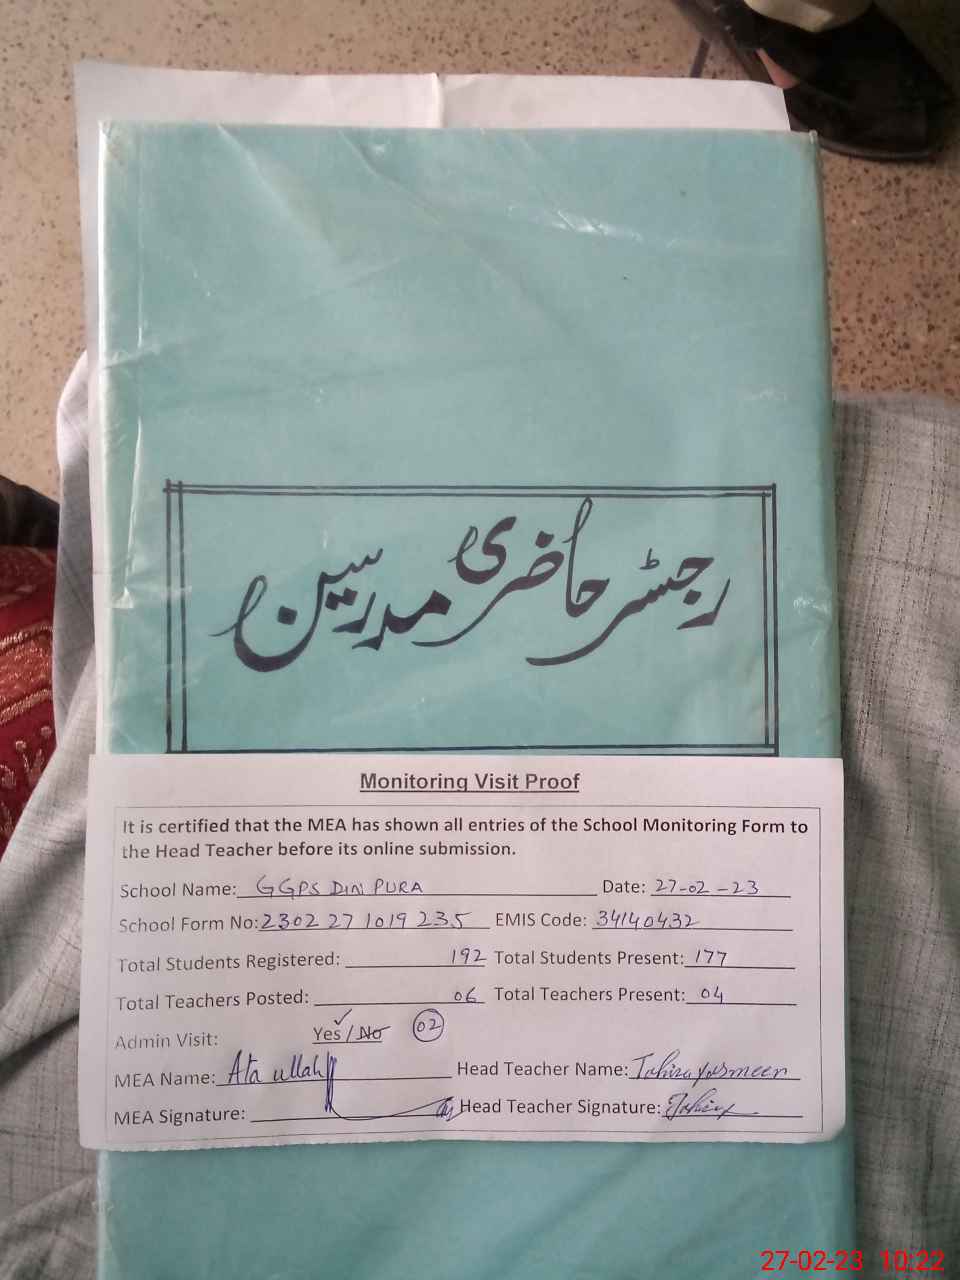 رجسٹر حاضری مدرسین
Monitoring Visit Proof
It is certified that the MEA has shown all entries of the School Monitoring Form to
the Head Teacher before its online submission.
School Name: GGPS DINPURA Date: 27-02-23
School Form No: 2302271019235 EMIS Code: 34140432
Total Students Registered: 192 Total Students Present: 177
Total Teachers Posted: 06 Total Teachers Present: 04
Admin Visit: Yes / No 02
MEA Name: Ata ullah Head Teacher Name: Tahira Yasmeen
MEA Signature: Head Teacher Signature: Tahira
27-02-23 10:22